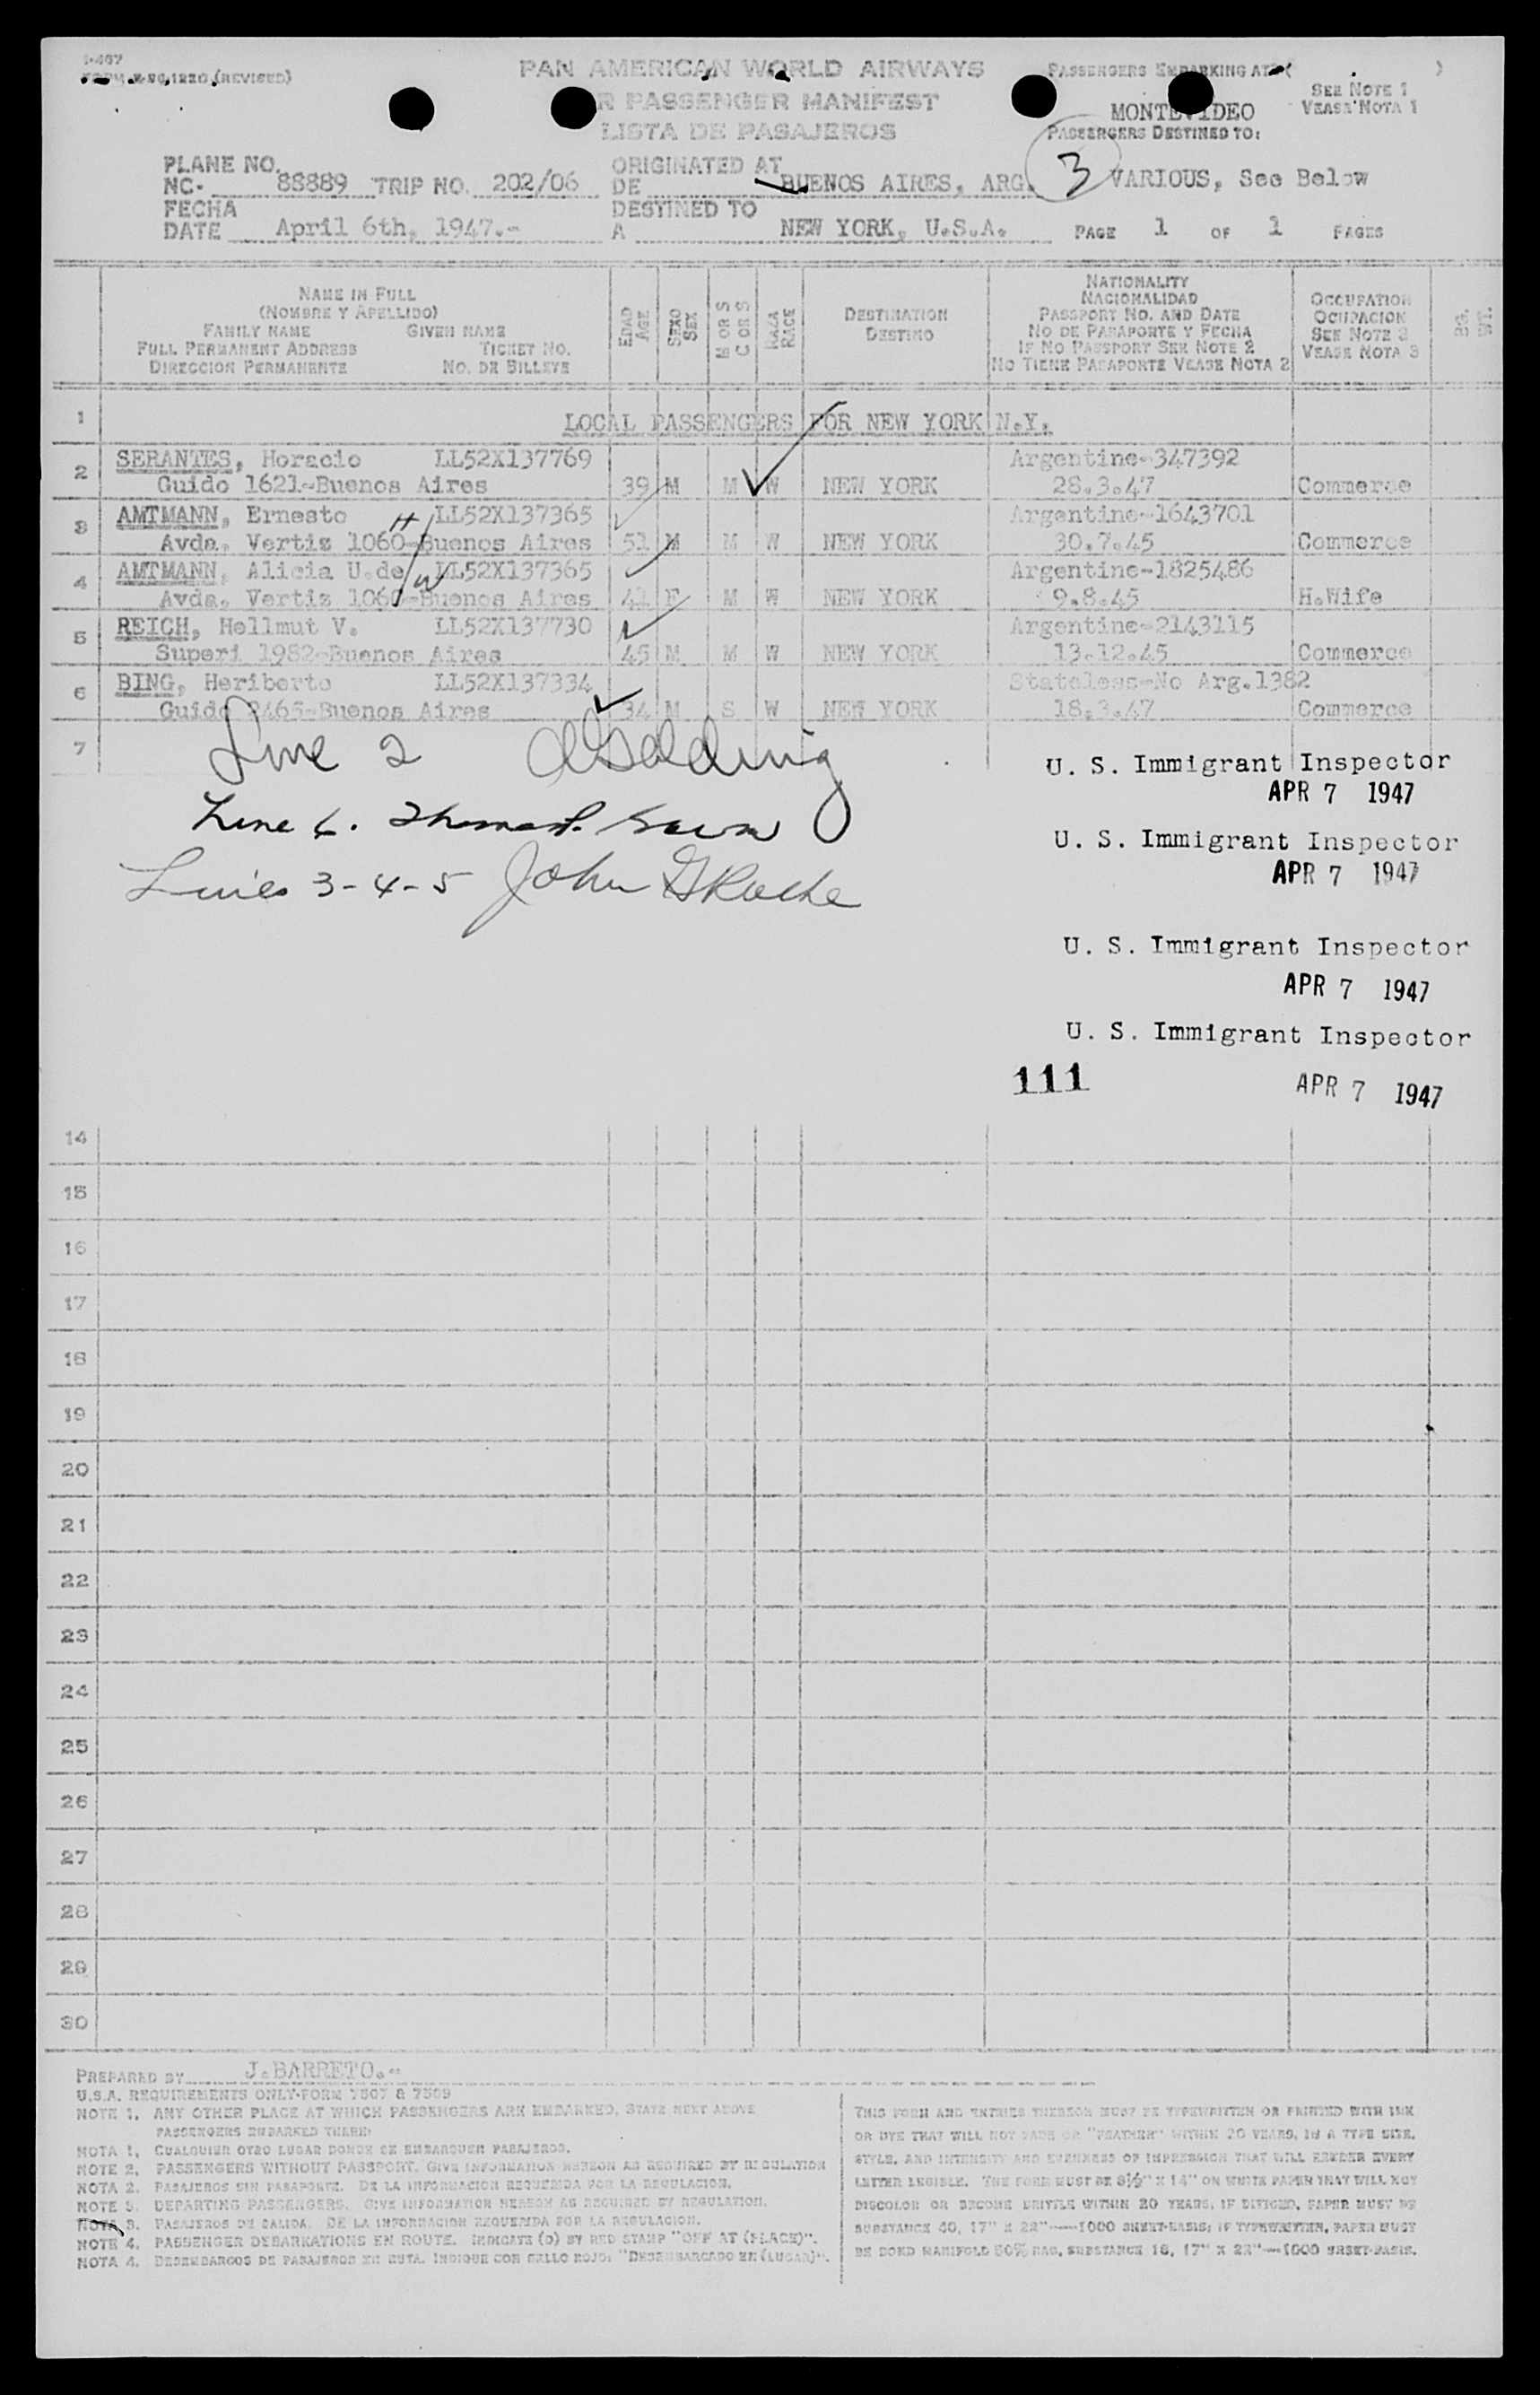 I-467
PAN AMERICAN WORLD AIRWAYS
PASSENGER MANIFEST
LISTA DE PASAJEROS
PASSENGERS EMBARKING AT (
)
SEE NOTE 1
VEASE NOTA 1
MONTEVIDEO
PASSENGERS DESTINED TO:
3 VARIOUS, See Below
PLANE NO.
NC- 88889 TRIP NO. 202/06
ORIGINATED AT
DE BUENOS AIRES, ARG.
FECHA
DATE April 6th, 1947.-
DESTINED TO
A NEW YORK, U.S.A.
PAGE 1 OF 1 PAGES
NAME IN FULL
(NOMBRE Y APELLIDO)
FAMILY NAME GIVEN NAME
FULL PERMANENT ADDRESS TICKET NO.
DIRECCION PERMANENTE NO. DE BILLETE
EDAD
AGE
SEXO
SEX
M OR S
C OR S
RAZA
RACE
DESTINATION
DESTINO
NATIONALITY
NACIONALIDAD
PASSPORT NO. AND DATE
NO DE PASAPORTE Y FECHA
IF NO PASSPORT SEE NOTE 2
NO TIENE PASAPORTE VEASE NOTA 2
OCCUPATION
OCUPACION
SEE NOTE 3
VEASE NOTA 3
1 LOCAL PASSENGERS FOR NEW YORK N.Y.
2 SERANTES, Horacio LL52X137769 Argentine-347392
Guido 1621-Buenos Aires 39 M M W NEW YORK 28.3.47 Commerce
3 AMTMANN, Ernesto H LL52X137365 Argentine-1643701
Avda. Vertiz 1060-Buenos Aires 51 M M W NEW YORK 30.7.45 Commerce
4 AMTMANN, Alicia U.de W LL52X137365 Argentine-1825486
Avda. Vertiz 1060-Buenos Aires 41 F M W NEW YORK 9.8.45 H.Wife
5 REICH, Hellmut V. LL52X137730 Argentine-2143115
Superi 1982-Buenos Aires 45 M M W NEW YORK 13.12.45 Commerce
6 BING, Heriberto LL52X137334 Stateless-No Arg.1382
Guido 2465-Buenos Aires 34 M S W NEW YORK 18.3.47 Commerce
7
Line 2 Golding
U. S. Immigrant Inspector
APR 7 1947
Line 6. Thomas
U. S. Immigrant Inspector
APR 7 1947
Lines 3-4-5 John G Roche
U. S. Immigrant Inspector
APR 7 1947
U. S. Immigrant Inspector
111
APR 7 1947
14
15
16
17
18
19
20
21
22
23
24
25
26
27
28
29
30
PREPARED BY J.BARRETO.-
U.S.A. REQUIREMENTS ONLY-FORM 7507 & 7509
NOTE 1. ANY OTHER PLACE AT WHICH PASSENGERS ARE EMBARKED, STATE NEXT ABOVE
PASSENGERS EMBARKED THERE)
NOTA 1. CUALQUIER OTRO LUGAR DONDE SE EMBARQUEN PASAJEROS.
NOTE 2. PASSENGERS WITHOUT PASSPORT. GIVE INFORMATION HEREON AS REQUIRED BY REGULATION
NOTA 2. PASAJEROS SIN PASAPORTE. DE LA INFORMACION REQUERIDA POR LA REGULACION.
NOTE 3. DEPARTING PASSENGERS. GIVE INFORMATION HEREON AS REQUIRED BY REGULATION.
NOTA 3. PASAJEROS DE SALIDA. DE LA INFORMACION REQUERIDA POR LA REGULACION.
NOTE 4. PASSENGER DEBARKATIONS EN ROUTE. INDICATE (O) BY RED STAMP "OFF AT (PLACE)".
NOTA 4. DESEMBARCOS DE PASAJEROS EN RUTA. INDIQUE CON SELLO ROJO: "DESEMBARCADO EN (LUGAR)".
THIS FORM AND ENTRIES THEREON MUST BE TYPEWRITTEN OR PRINTED WITH INK
OR DYE THAT WILL NOT FADE OR "FEATHER" WITHIN 20 YEARS, IN A TYPE SIZE,
STYLE, AND INTENSITY AND EVENNESS OF IMPRESSION THAT WILL RENDER EVERY
LETTER LEGIBLE. THE FORM MUST BE 8½" X 14" ON WHITE PAPER THAT WILL NOT
DISCOLOR OR BECOME BRITTLE WITHIN 20 YEARS. IF DITTOED, PAPER MUST BE
SUBSTANCE 40, 17" X 22"—1000 SHEET-BASIS; IF TYPEWRITTEN, PAPER MUST
BE BOND MANIFOLD 50% RAG, SUBSTANCE 16, 17" X 22"—1000 SHEET-BASIS.